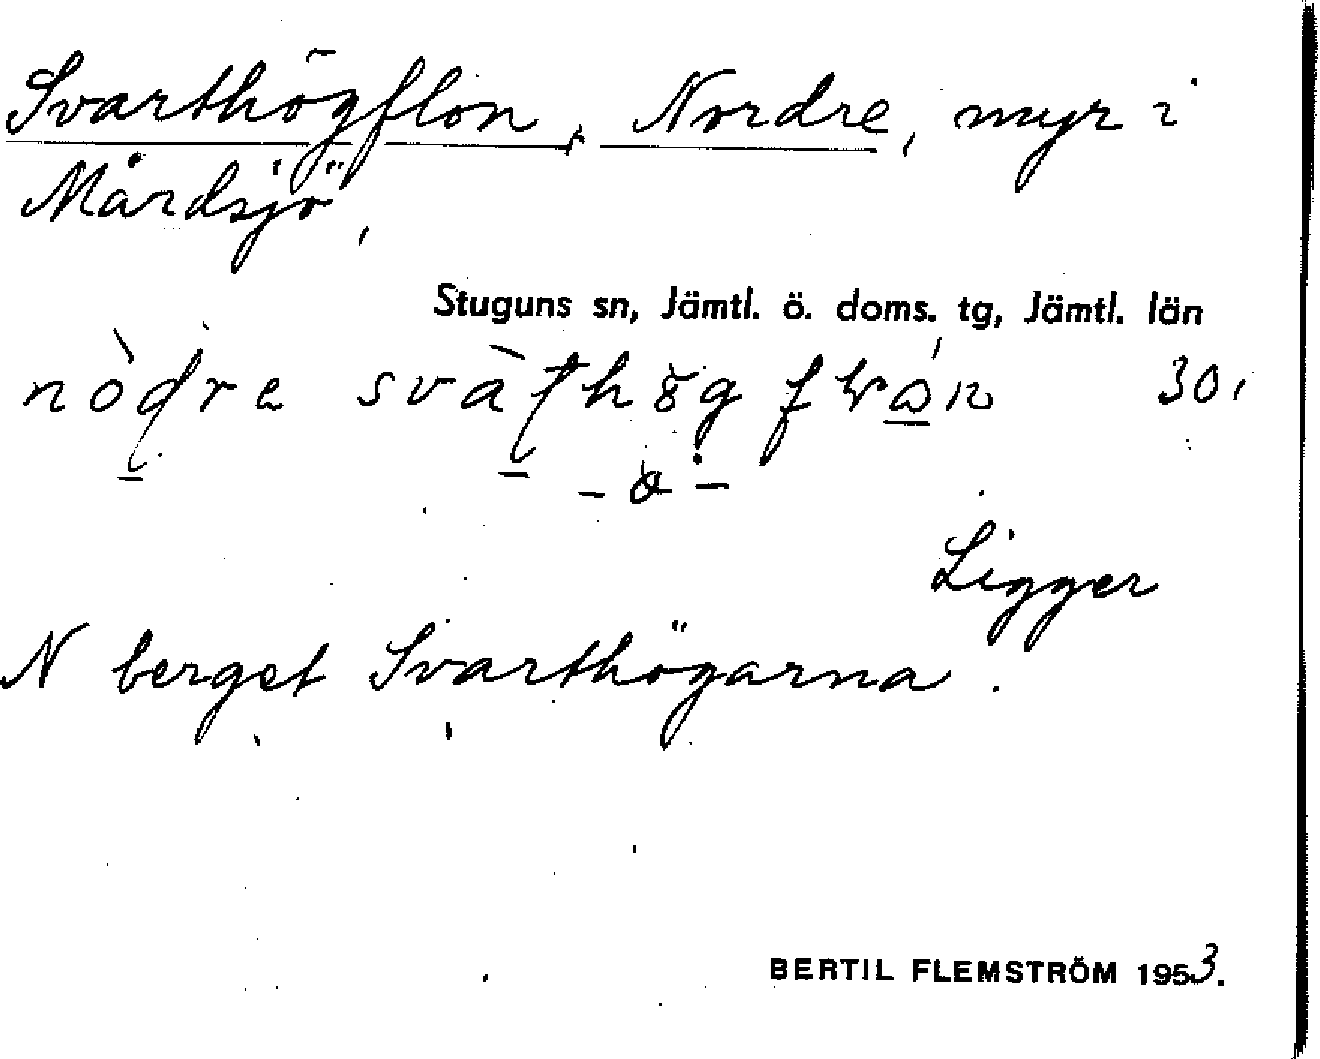 Svarthögflon, Nordre, myr i
Mårdsjö,
Stuguns sn, Jämtl. ö. doms. tg, Jämtl. län
30,
Ligger
N berget Svarthögarna.
BERTIL FLEMSTRÖM 1953.